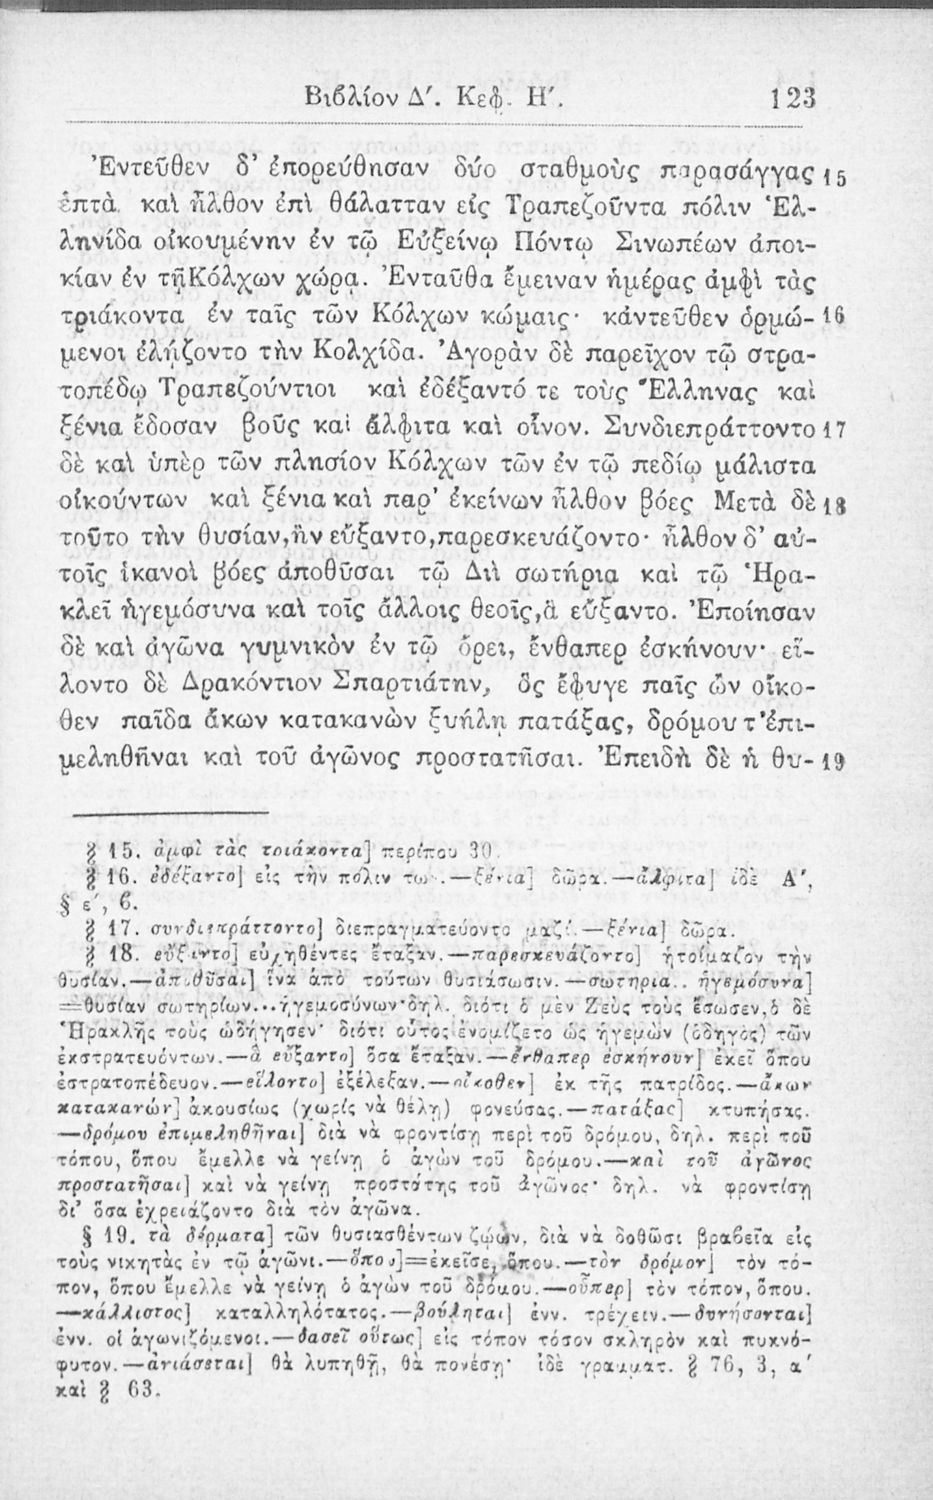 Βιβλίον Δʹ. Κεφ. Ηʹ. 123
Ἐντεῦθεν δ' ἐπορεύθησαν δύο σταθμοὺς παρασάγγας 15
ἑπτὰ καὶ ἦλθον ἐπὶ θάλατταν εἰς Τραπεζοῦντα πόλιν Ἑλ-
ληνίδα οἰκουμένην ἐν τῷ Εὐξείνῳ Πόντῳ Σινωπέων ἀποι-
κίαν ἐν τῇ Κόλχων χώρα. Ἐνταῦθα ἔμειναν ἡμέρας ἀμφὶ τὰς
τριάκοντα ἐν ταῖς τῶν Κόλχων κώμαις· κἀντεῦθεν ὁρμώ- 16
μενοι ἐλῄζοντο τὴν Κολχίδα. Ἀγορὰν δὲ παρεῖχον τῷ στρα-
τοπέδῳ Τραπεζούντιοι καὶ ἐδέξαντό τε τοὺς Ἕλληνας καὶ
ξένια ἔδοσαν βοῦς καὶ ἄλφιτα καὶ οἶνον. Συνδιεπράττοντο 17
δὲ καὶ ὑπὲρ τῶν πλησίον Κόλχων τῶν ἐν τῷ πεδίῳ μάλιστα
οἰκούντων καὶ ξένια καὶ παρ' ἐκείνων ἦλθον βόες Μετὰ δὲ 18
τοῦτο τὴν θυσίαν, ἣν εὔξαντο, παρεσκευάζοντο· ἦλθον δ' αὐ-
τοῖς ἱκανοὶ βόες ἀποθῦσαι τῷ Διὶ σωτήρια καὶ τῷ Ἡρα-
κλεῖ ἡγεμόσυνα καὶ τοῖς ἄλλοις θεοῖς, ἃ εὔξαντο. Ἐποίησαν
δὲ καὶ ἀγῶνα γυμνικὸν ἐν τῷ ὄρει, ἔνθαπερ ἐσκήνουν· εἵ-
λοντο δὲ Δρακόντιον Σπαρτιάτην, ὃς ἔφυγε παῖς ὢν οἴκο-
θεν παῖδα ἄκων κατακανὼν ξυήλῃ πατάξας, δρόμου τ' ἐπι-
μεληθῆναι καὶ τοῦ ἀγῶνος προστατῆσαι. Ἐπειδὴ δὲ ἡ θυ- 19
§ 15. ἀμφὶ τὰς τριάκοντα] περίπου 30.
§ 16. ἐδέξαντο] εἰς τὴν πόλιν των.—ξένια] δῶρα.—ἄλφιτα] ἰδὲ Αʹ,
§ εʹ, 6.
§ 17. συνδιεπράττοντο] διεπραγματεύοντο μαζί.—ξένια] δῶρα.
§ 18. εὔξαντο] εὐχηθέντες ἔταξαν.—παρεσκευάζοντο] ἡτοίμαζον τὴν
θυσίαν.—ἀποθῦσαι] ἵνα ἀπὸ τούτων θυσιάσωσιν.—σωτήρια.. ἡγεμόσυνα]
=θυσίαν σωτηρίων...ἡγεμοσύνων· δηλ. διότι ὁ μὲν Ζεὺς τοὺς ἔσωσεν, ὁ δὲ
Ἡρακλῆς τοὺς ὡδήγησεν· διότι οὗτος ἐνομίζετο ὡς ἡγεμὼν (ὁδηγὸς) τῶν
ἐκστρατευόντων.—ἃ εὔξαντο] ὅσα ἔταξαν.—ἔνθαπερ ἐσκήνουν] ἐκεῖ ὅπου
ἐστρατοπέδευον.—εἵλοντο] ἐξέλεξαν.—οἴκοθεν] ἐκ τῆς πατρίδος.—ἄκων
κατακανὼν] ἀκουσίως (χωρὶς νὰ θέλῃ) φονεύσας.—πατάξας] κτυπήσας.
—δρόμου ἐπιμεληθῆναι] διὰ νὰ φροντίσῃ περὶ τοῦ δρόμου, δηλ. περὶ τοῦ
τόπου, ὅπου ἔμελλε νὰ γείνῃ ὁ ἀγὼν τοῦ δρόμου.—καὶ τοῦ ἀγῶνος
προστατῆσαι] καὶ νὰ γείνῃ προστάτης τοῦ ἀγῶνος· δηλ. νὰ φροντίσῃ
δι' ὅσα ἐχρειάζοντο διὰ τὸν ἀγῶνα.
§ 19. τὰ δέρματα] τῶν θυσιασθέντων ζῴων, διὰ νὰ δοθῶσι βραβεῖα εἰς
τοὺς νικητὰς ἐν τῷ ἀγῶνι.—ὅπου]=ἐκεῖσε, ὅπου.—τὸν δρόμον] τὸν τό-
πον, ὅπου ἔμελλε νὰ γείνῃ ὁ ἀγὼν τοῦ δρόμου.—οὗπερ] τὸν τόπον, ὅπου.
—κάλλιστος] καταλληλότατος.—βούληται] ἐνν. τρέχειν.—δυνήσονται]
ἐνν. οἱ ἀγωνιζόμενοι.—δασεῖ οὕτως] εἰς τόπον τόσον σκληρὸν καὶ πυκνό-
φυτον.—ἀνιάσεται] θὰ λυπηθῇ, θὰ πονέσῃ· ἰδὲ γραμματ. § 76, 3, αʹ
καὶ § 63.